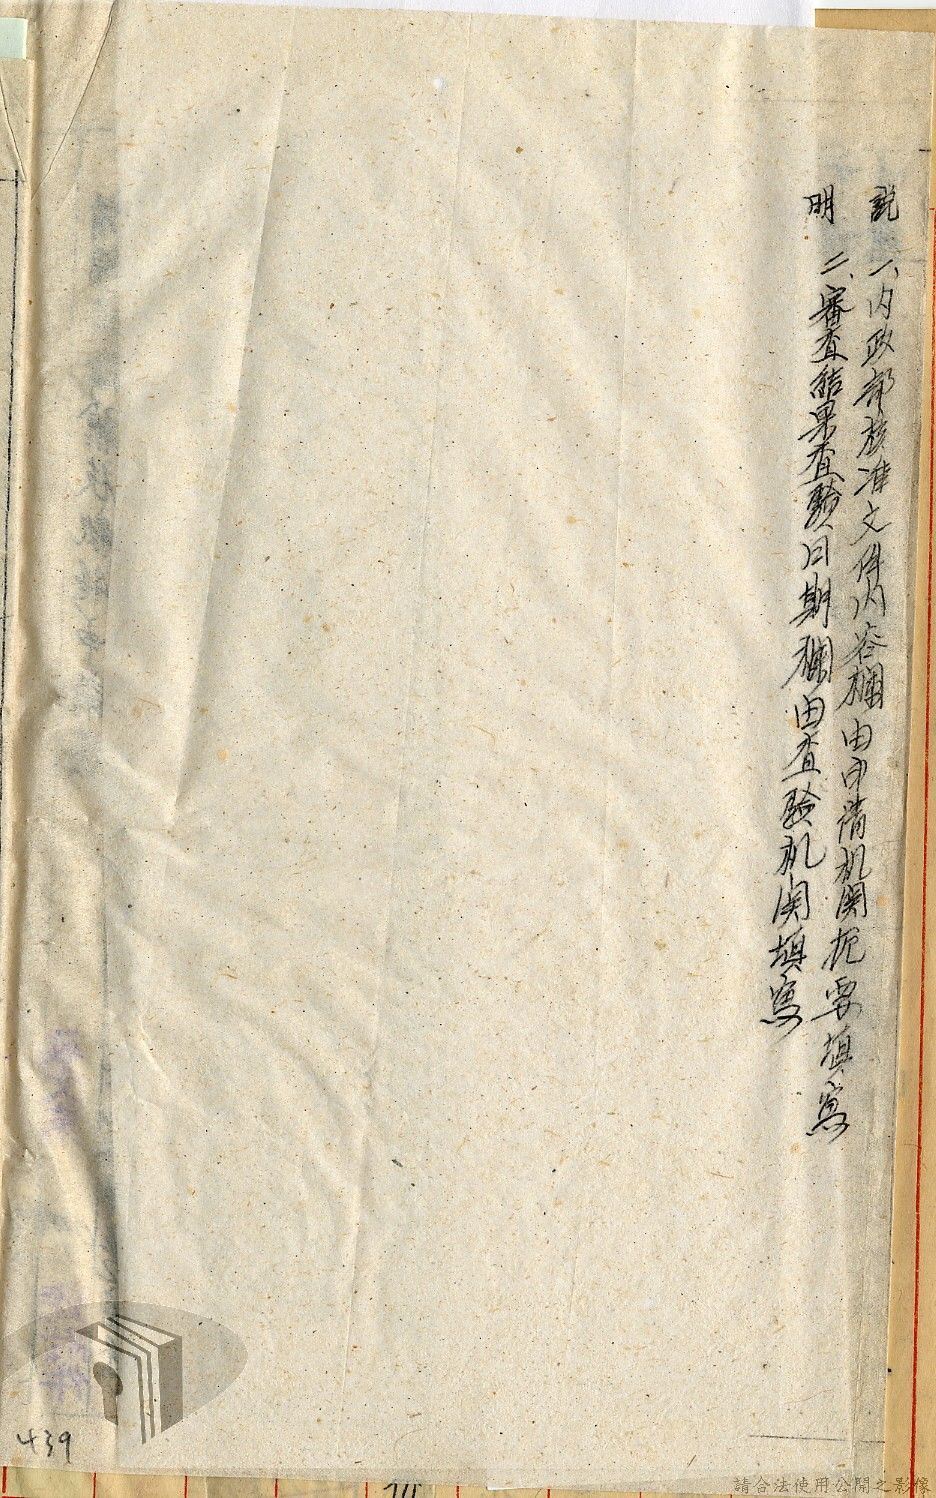 説明
一、内政部核准文件内容欄由申請机関扼要填寫
二、審查結果查驗日期欄由查驗机関填寫
439
請合法使用公開之影像